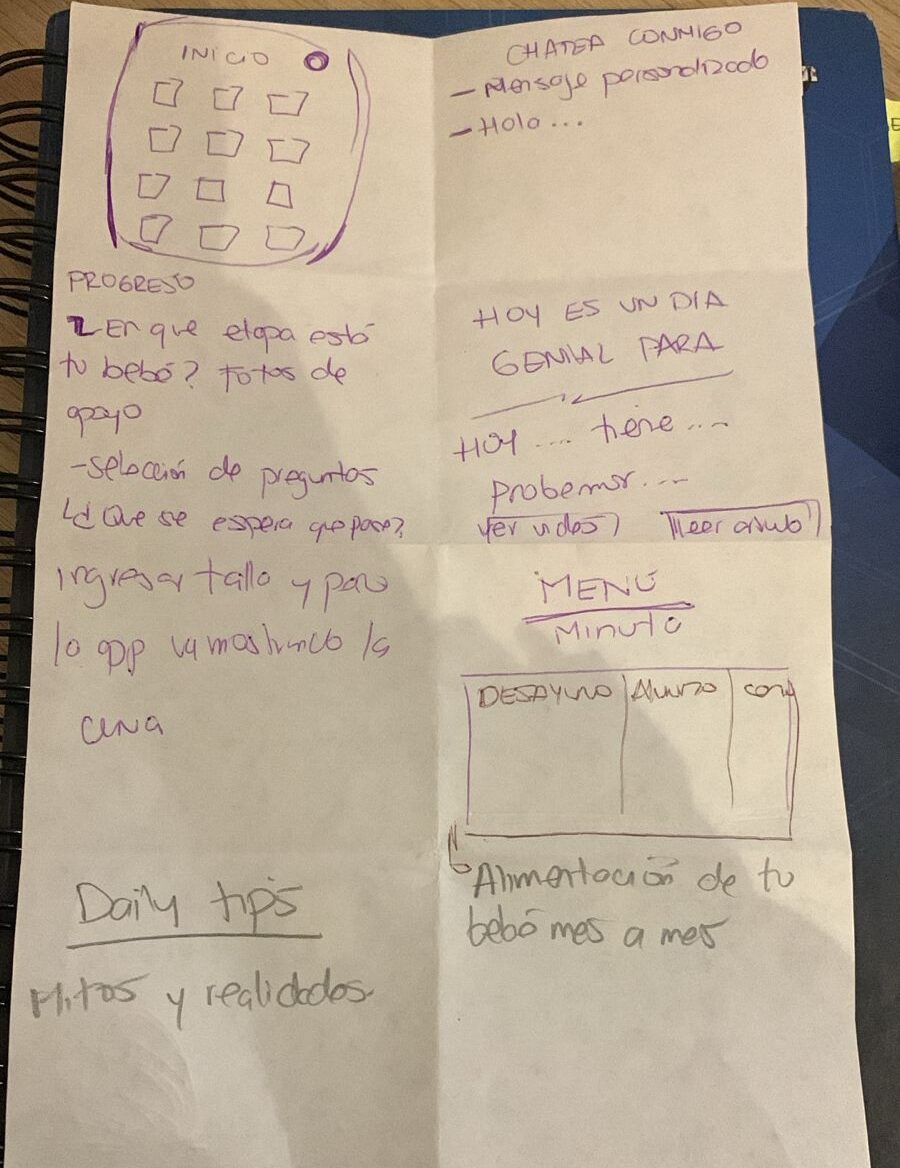 INICIO
PROGRESO
En que etapa está
tu bebé? Fotos de
apoyo
-Selección de preguntas
¿Que se espera que pase?
Ingresar talla y
la app va mostrando la
CHATEA CONMIGO
- Mensaje personalizado
- Hola...
HOY ES UN DIA
GENIAL PARA
HOY .... tiene ....
Probemos....
Ver video
MENÚ
Minuta
DESAYUNO Almuerzo
Alimentación de tu
bebé mes a mes
Daily tips
Mitos y realidades